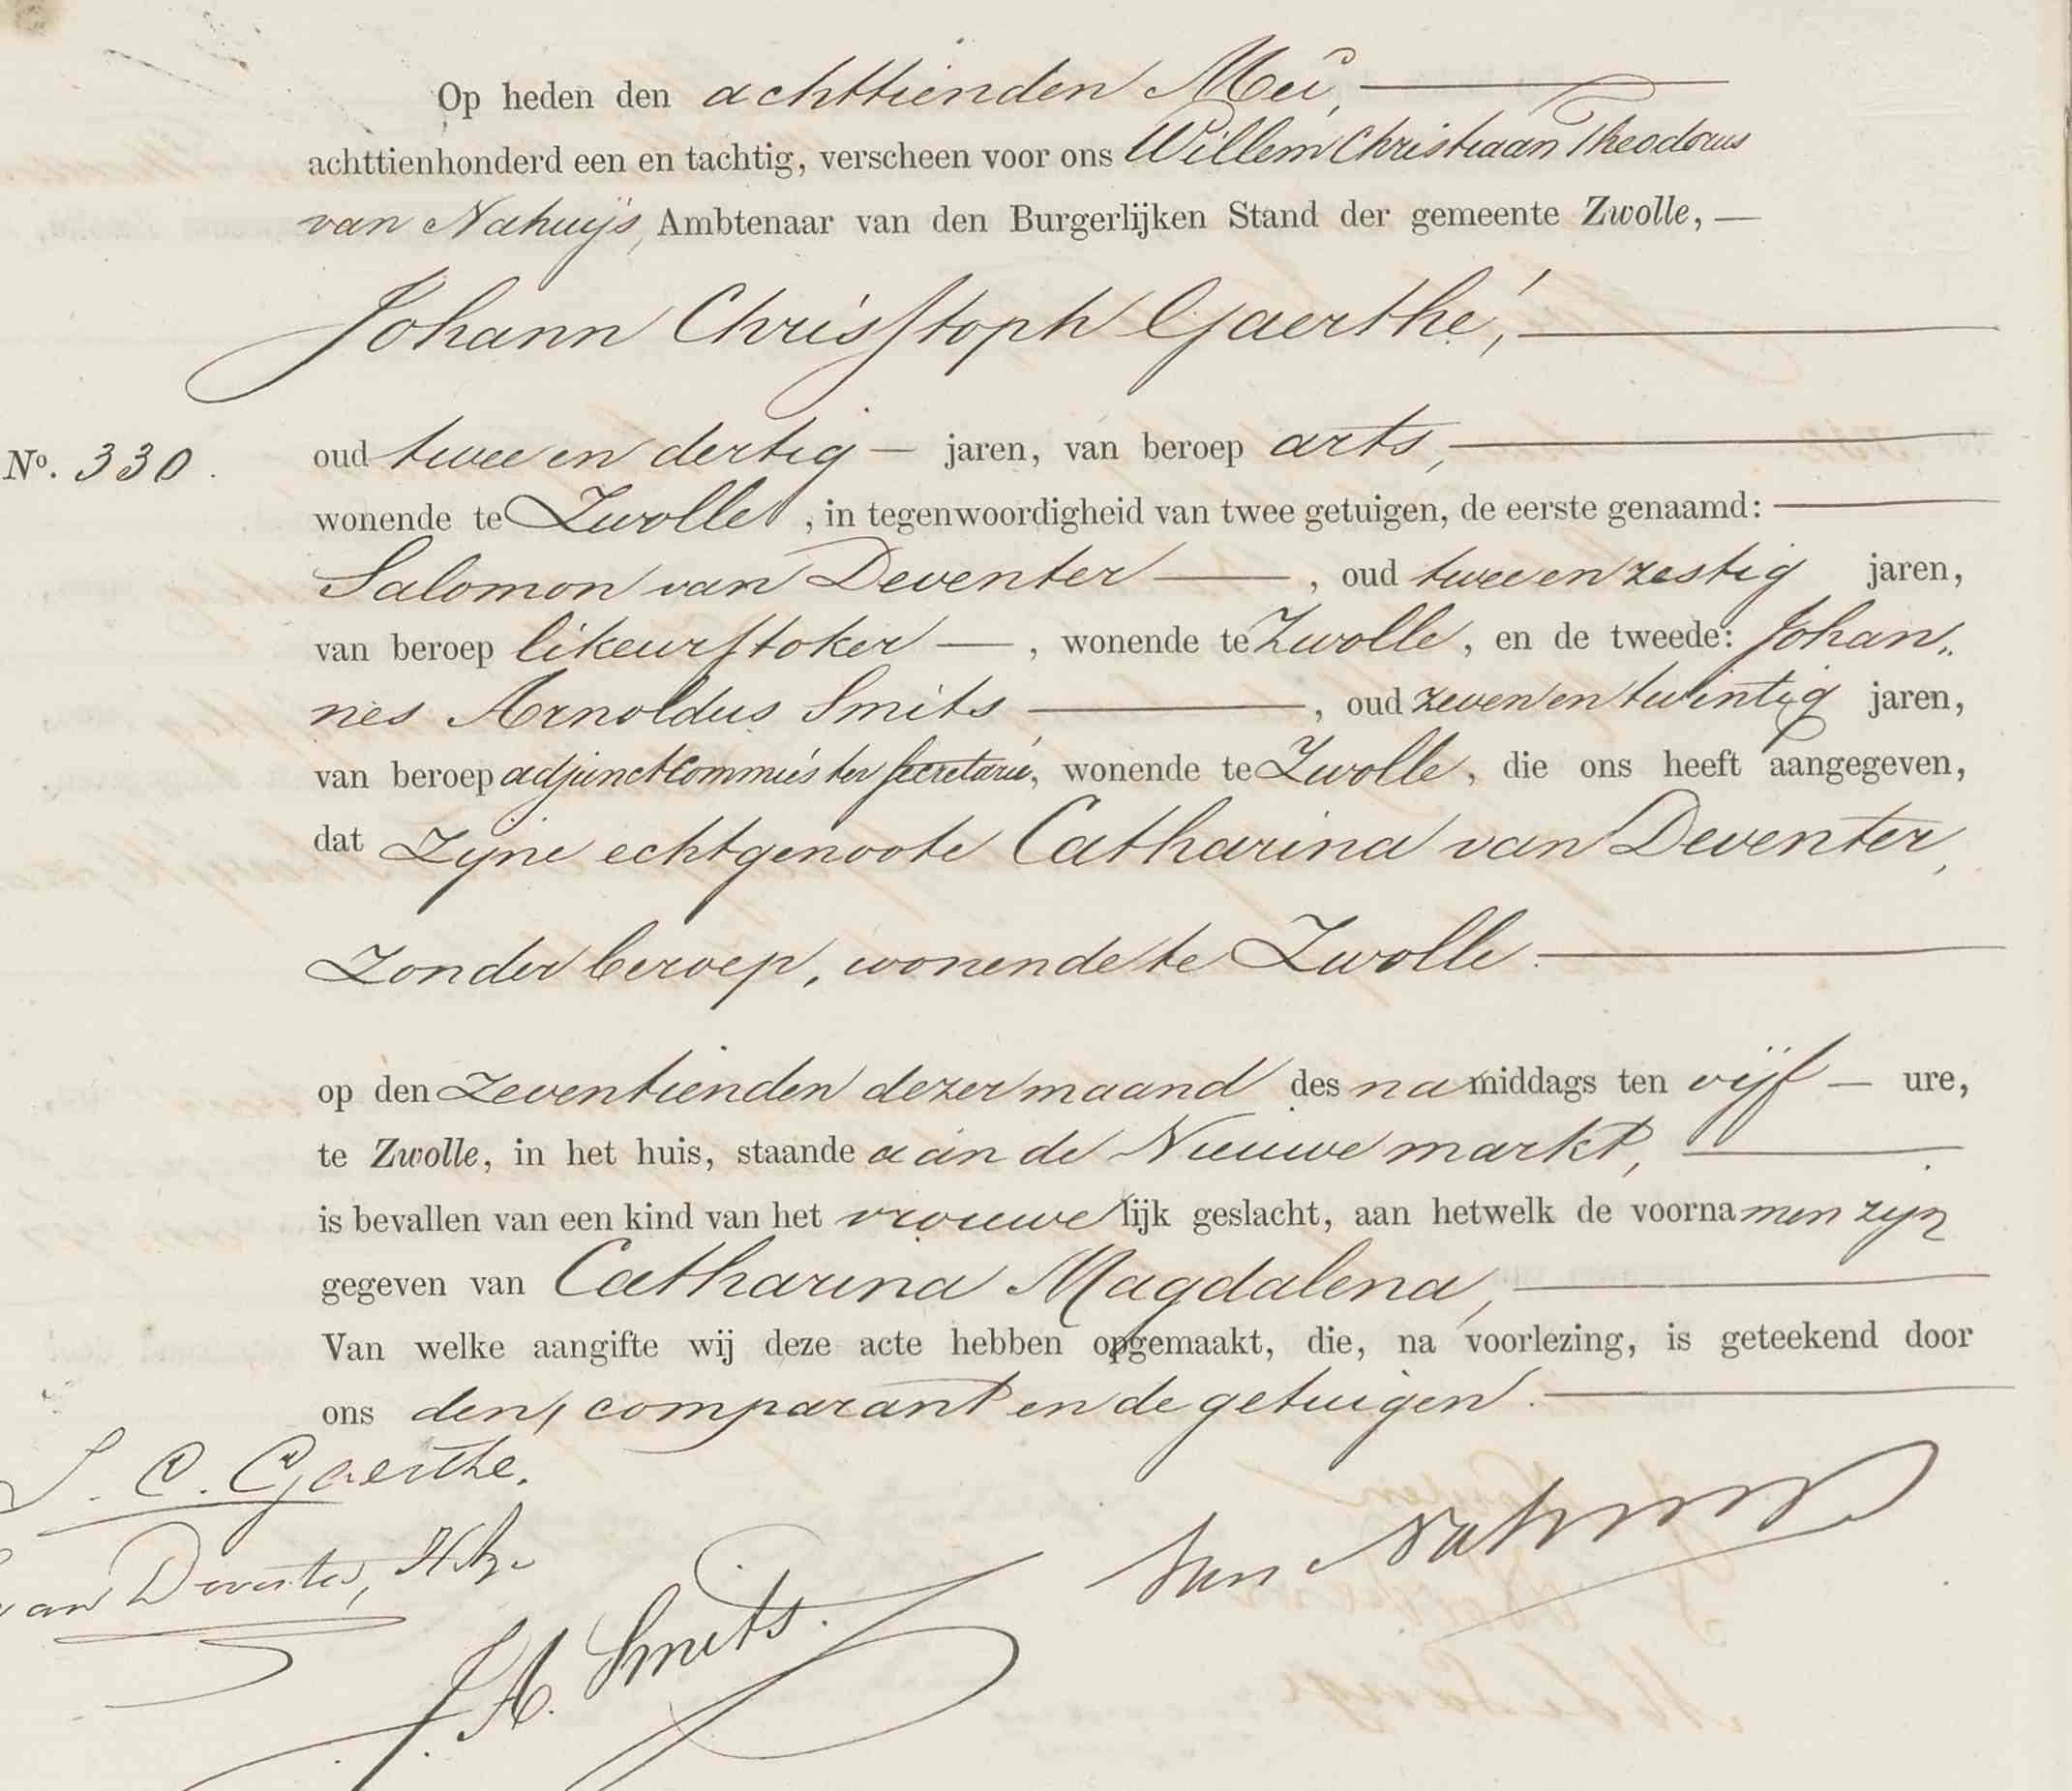 Op heden den achttienden Mei,
achttienhonderd een en tachtig, verscheen voor ons Willem Christiaan Theodorus
van Nahuijs, Ambtenaar van den Burgerlijken Stand der gemeente Zwolle,
Johann Christoph Gaerthé,
No. 330. oud twee en dertig jaren, van beroep arts,
wonende te Zwolle, in tegenwoordigheid van twee getuigen, de eerste genaamd:
Salomon van Deventer, oud twee en zestig jaren,
van beroep likeurstoker, wonende te Zwolle, en de tweede: Johan„
nes Arnoldus Smits, oud zeven en twintig jaren,
van beroep adjunct Commies ter secretarie, wonende te Zwolle, die ons heeft aangegeven,
dat zijne echtgenoote Catharina van Deventer,
zonder beroep, wonende te Zwolle
op den zeventienden dezer maand des namiddags ten vijf ure,
te Zwolle, in het huis, staande aan de Nieuwe markt,
is bevallen van een kind van het vrouwelijk geslacht, aan hetwelk de voornamen zijn
gegeven van Catharina Magdalena,
Van welke aangifte wij deze acte hebben opgemaakt, die, na voorlezing, is geteekend door
ons den, comparant en de getuigen.
J. C. Gaerthe.
van Deventer, Hz.
van Nahuijs
J. A. Smits.